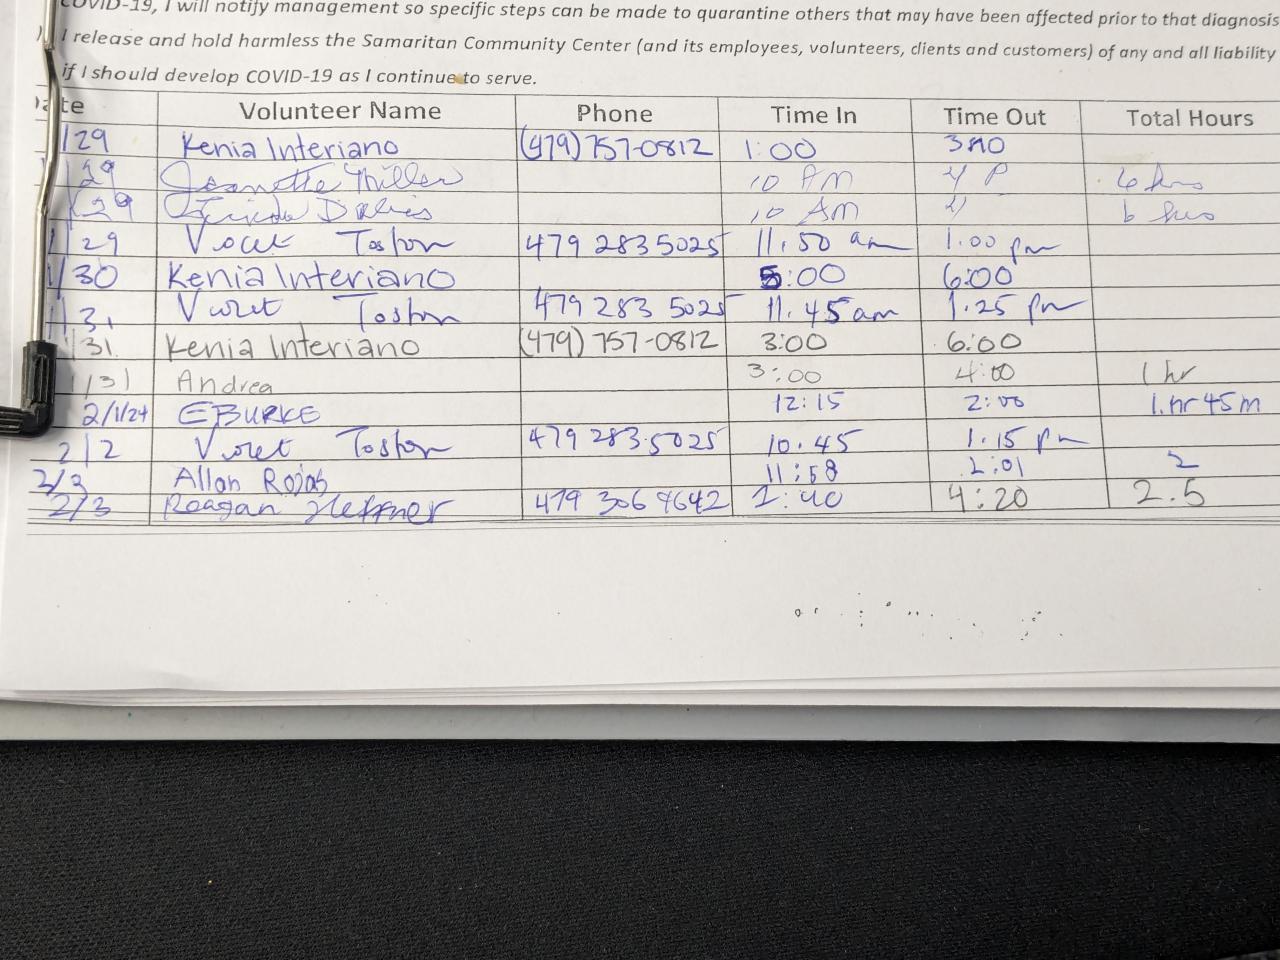 COVID-19, I will notify management so specific steps can be made to quarantine others that may have been affected prior to that diagnosis
I release and hold harmless the Samaritan Community Center (and its employees, volunteers, clients and customers) of any and all liability
if I should develop COVID-19 as I continue to serve.
Date Volunteer Name Phone Time In Time Out Total Hours
1/29 Kenia Interiano (479) 757-0812 1:00
1/29 Jeanette Miller 10 AM 4 P 6 hrs
1/29 10 AM 4 6 hrs
1/29 Toston 479 283 5025 11.50 am 1.00 pm
1/30 Kenia Interiano 5:00 6:00
1/31 Violet Toston 479 283 5025 11.45 am 1.25 pm
1/31 Kenia Interiano (479) 757-0812 3:00 6:00
1/31 Andrea 3:00 4:00 1 hr
2/1/24 E BURKE 12:15 2:00 1.hr 45 m
2/2 Violet Toston 479 283.5025 10.45 1.15 pm
2/3 Allan Rojas 11:58 2:01 2
2/3 Reagan 479 306 4:20 2.5